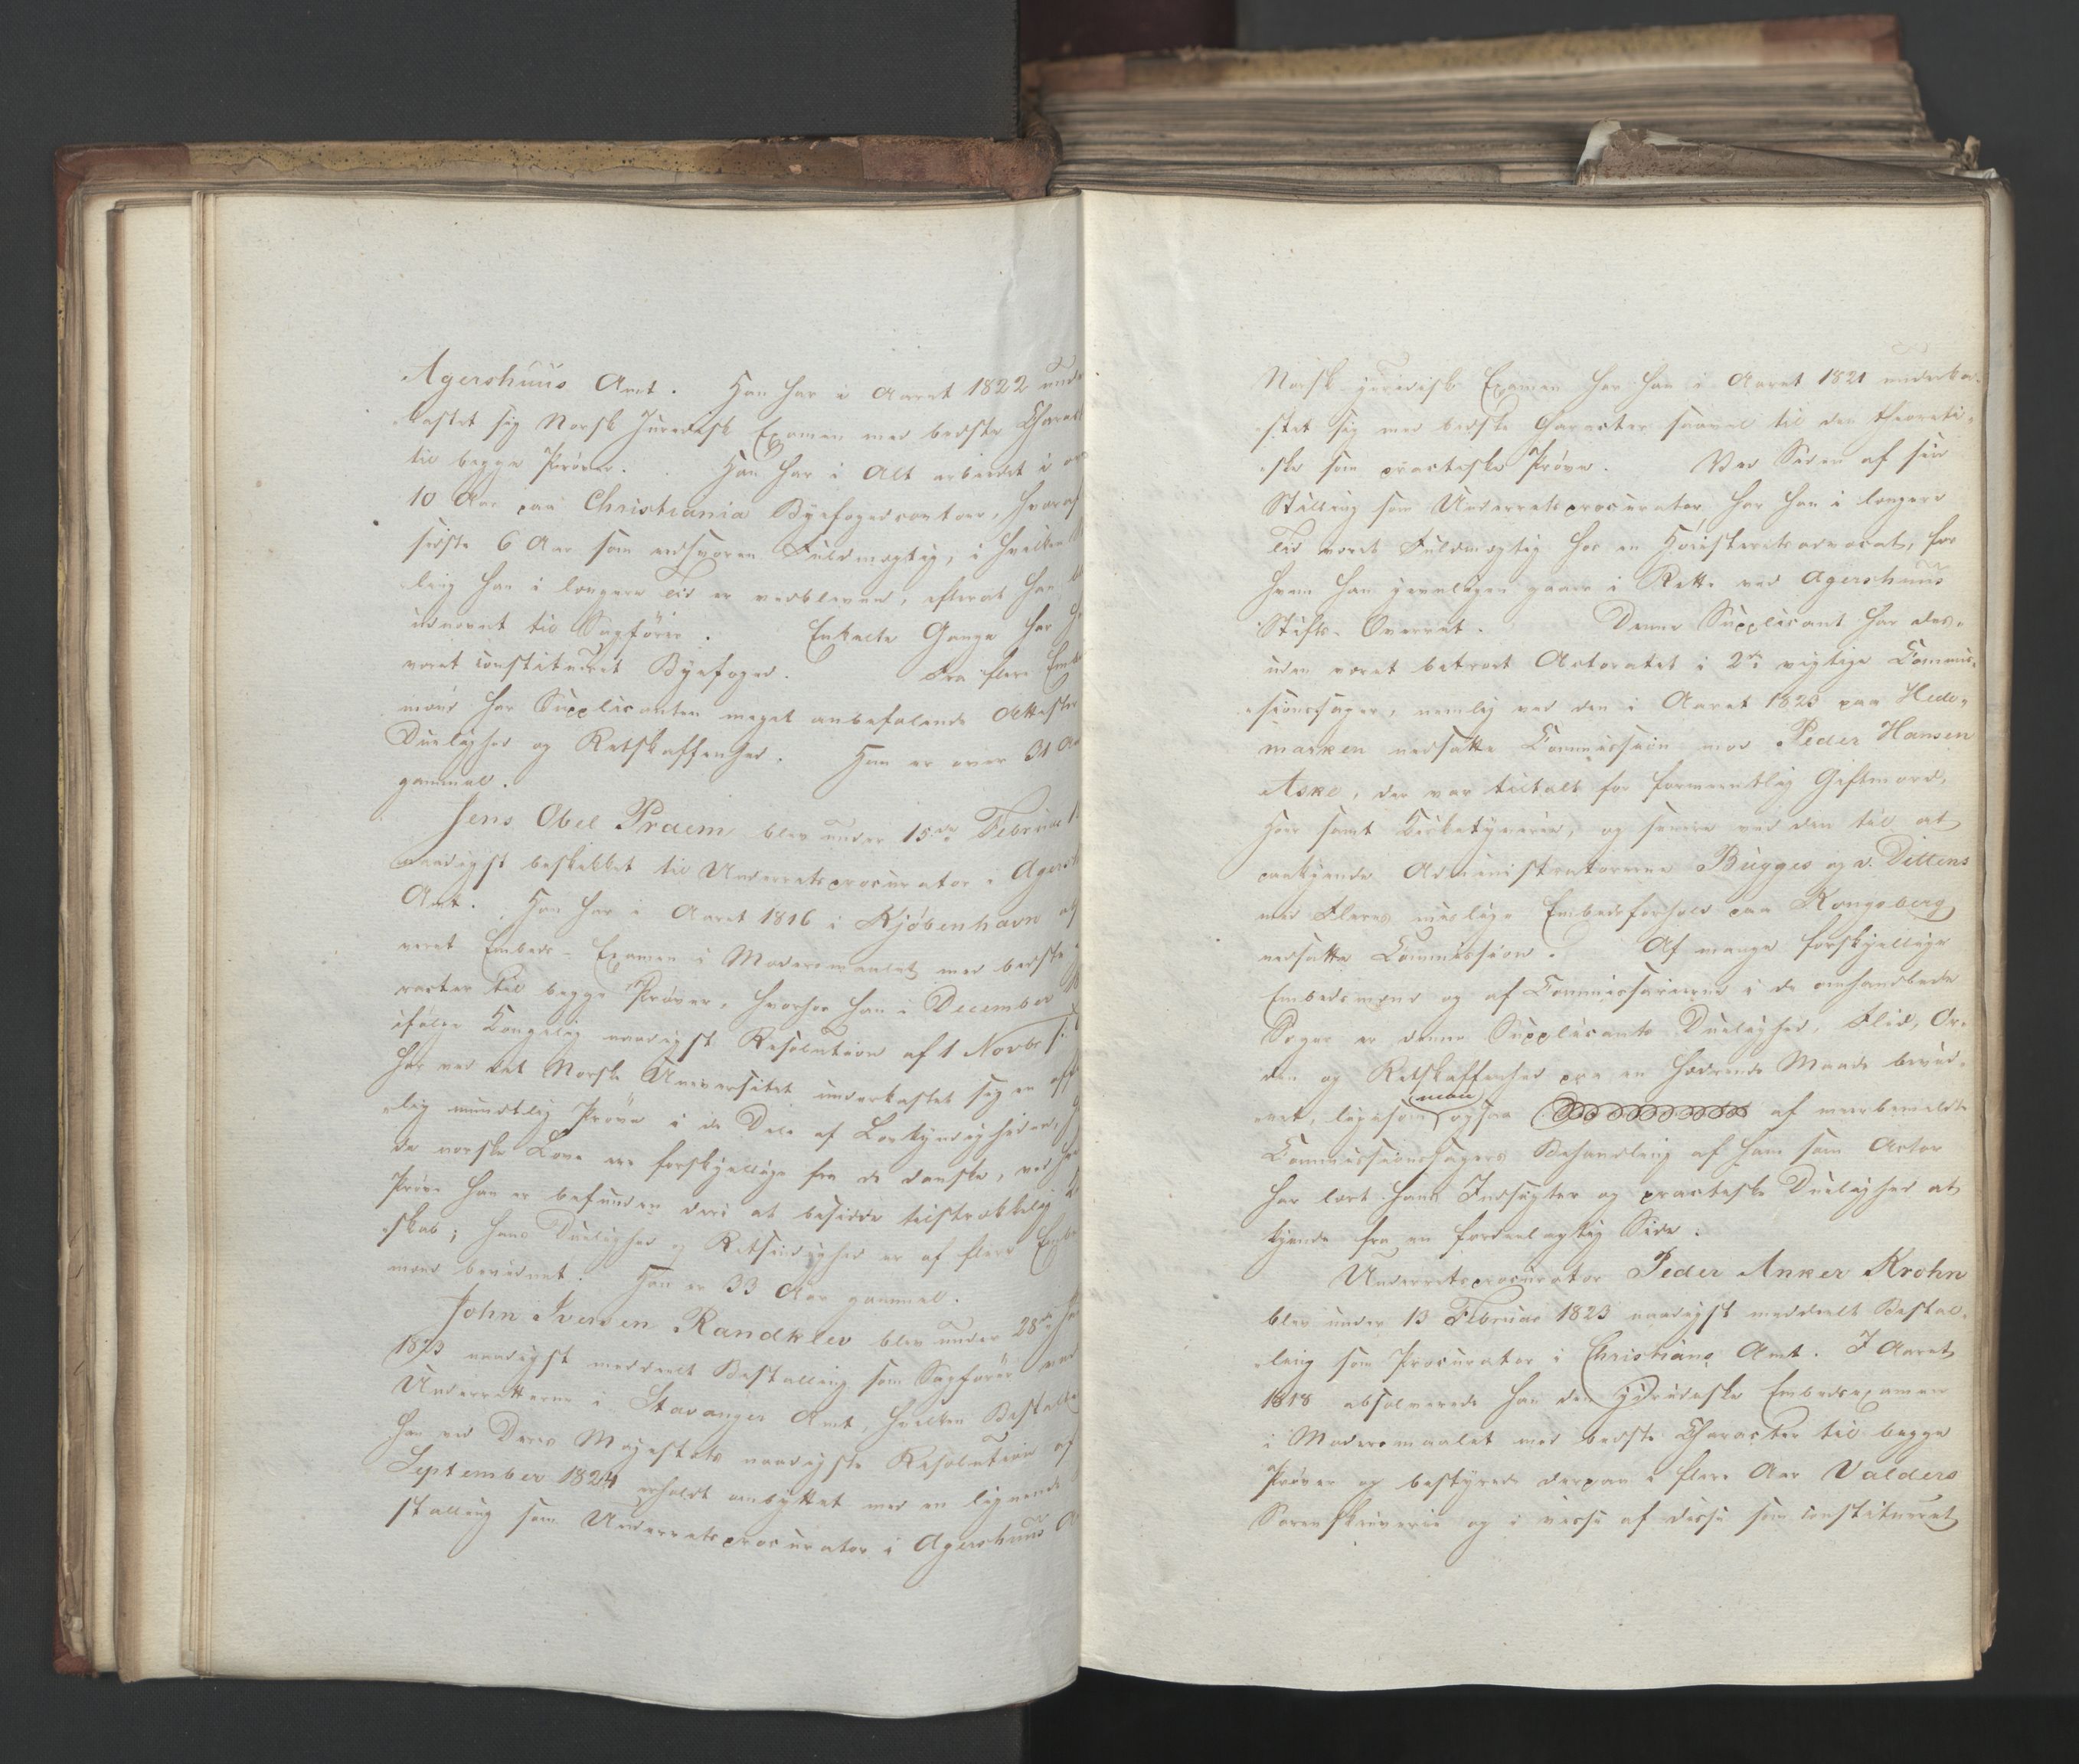 Agershuus Amt. Han har i Aaret 1822 unde
kastet sig Norsk Juridisk Examen med bedste Charact
til begge Prøver. Han har i Alt arbeidet i
10 Aar paa Christiania Byefogedcontoir, hvoraf
sidste 6 Aar som eedsvoren Fuldmægtig, i hvilken
ling han i længere Tid er vedbleven, efterat han
udnævnt til Sagfører. Enkelte Gange har h
været constitueret Byefoged. Fra flere Emb
mænd har Supplicanten meget anbefalende Attester
Duelighed og Retskaffenhed. Han er over 31 Aar
gammel.
Jens Obel Praem blev under 15de Februar 1
naadigst beskikket til Underretsprocurator i Agersh
Amt. Han har i Aaret 1816 i Kjøbenhavn
veret Embeds-Examen i Modersmaalet med bedste
racter til begge Prøver, hvorhos han i December 18
ifølge Kongelig naadigst Resolution af 1 Novbr s. A
har ved det Norske Universitet underkastet sig en off
lig mundtlig Prøve i de Dele af Lovkyndigheden, h
de norske Love ere forskjellige fra de danske, ved h
Prøve han er befunden deri at besidde tilstrækkelig K
skab; hans Duelighed og Retsindighed er af flere Emb
mænd bevidnet. Han er 33 Aar gammel.
John Iversen Randklev blev under 28de
1823 naadigst meddeelt Bestalling som Sagfører ved
Underretterne i Stavanger Amt, hvilken Bestall
han ved Deres Majestæts naadigste Resolution af
September 1824 erholdt ombyttet med en lignende
stalling som Underretsprocurator i Agershuus A
Norsk juridisk Examen har han i Aaret 1821 underka-
stet sig med bedste Character saavel til den theoreti-
ske som practiske Prøve. Ved Siden af sin
Stilling som Underretsprocurator har han i længere
Tid været Fuldmægtig hos en Høiesteretsadvocat, for
hvem han jevnligen gaaer i Rette ved Agershuus
Stifts-Overret. Denne Supplicant har des-
uden været betroet Actoratet i 2de vigtige Commis-
sionssager, nemlig ved den i Aaret 1823 paa Hede-
marken nedsatte Commission mod Peder Hansen
Aske, der var tiltalt for formeentlig Giftmord,
Hoer samt Kirketyverie, og senere ved den til at
paakjende Administratorerne Bugges og v. Dittens
med Fleres mislige Embedsforhold paa Kongsberg
nedsatte Commission. Af mange forskjellige
Embedsmænd og af Commissarierne i de omhandlede
Sager er denne Supplicants Duelighed, Flid, Or-
den og Retskaffenhed paa en hædrende Maade bevid-
net, ligesom man ogsaa af meerbemeldte
Commissionssagers Behandling af ham som Actor
har lært hans Indsigter og practiske Duelighed at
kjende fra en fordeelagtig Side.
Underretsprocurator Peder Anker Krohn
blev under 13 Februar 1823 naadigst meddeelt Bestal-
ling som Procurator i Christians Amt. I Aaret
1818 absolverede han den juridiske Embedsexamen
i Modersmaalet med bedste Character til begge
Prøver og bestyrede derpaa i flere Aar Valders
Sorenskriverie og i visse af disse som constitueret